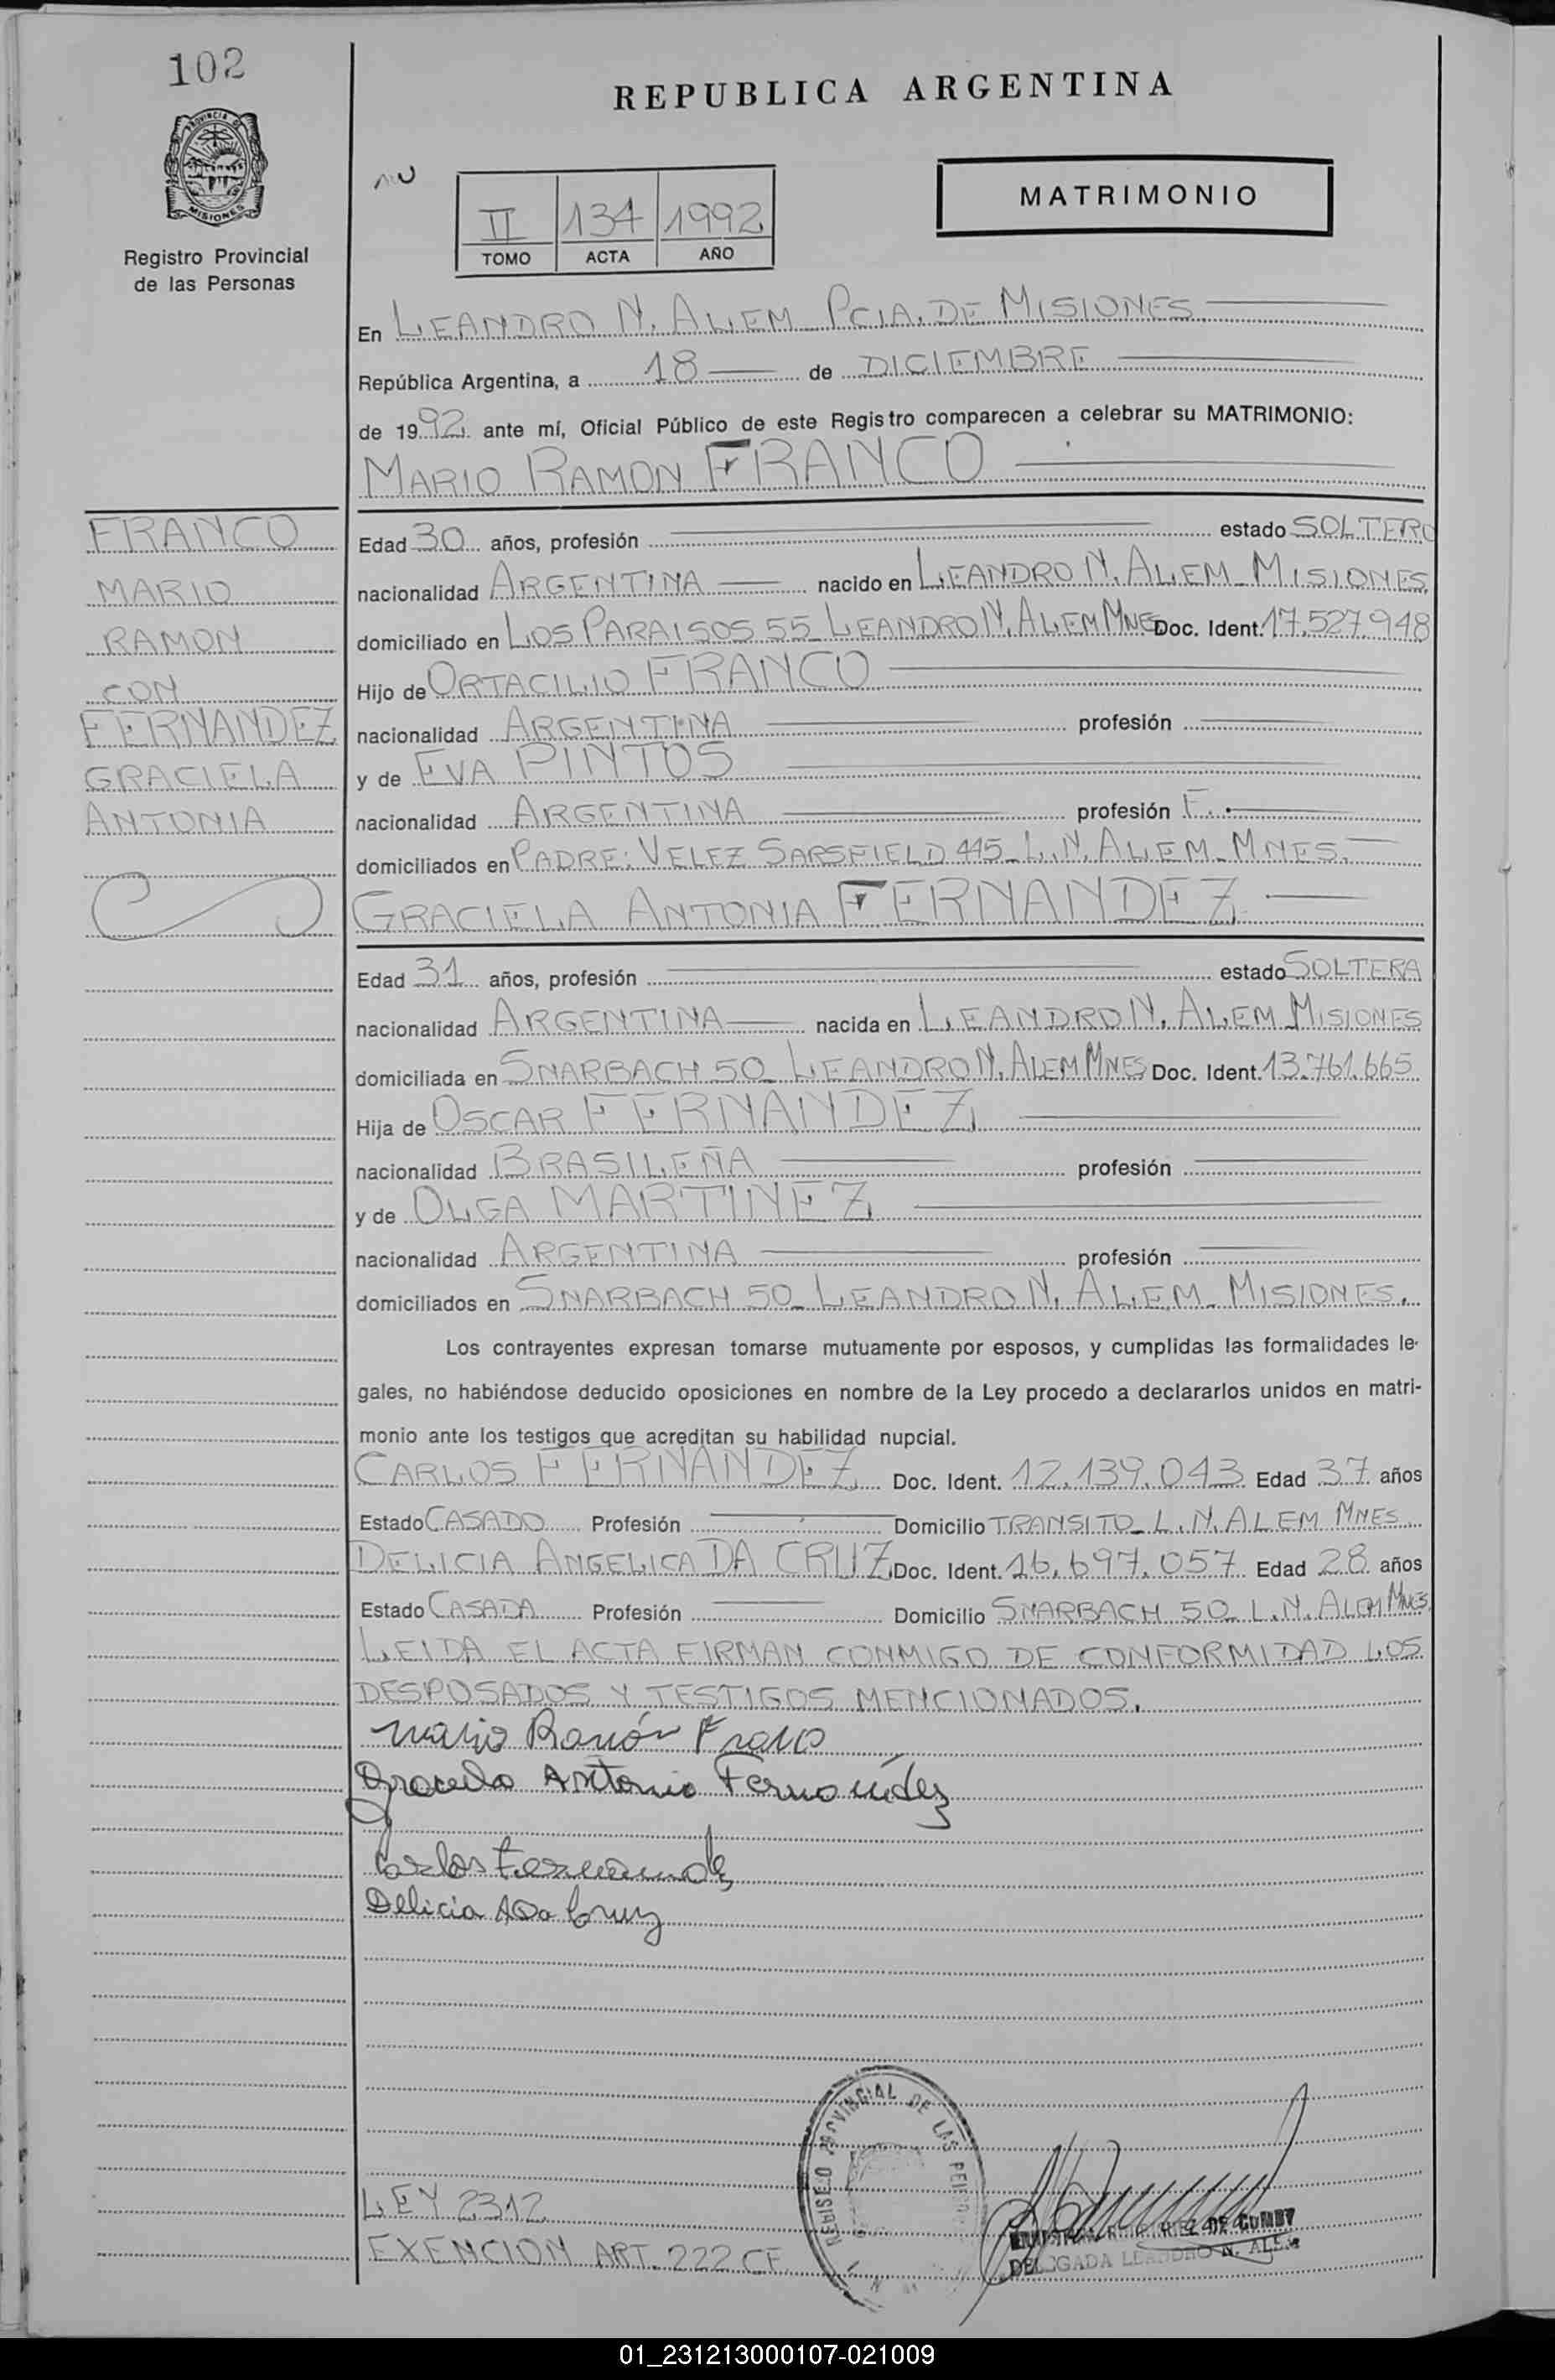 102
REPUBLICA ARGENTINA
PROVINCIA DE MISIONES
Registro Provincial
de las Personas
MATRIMONIO
II 134 1992
TOMO ACTA AÑO
En LEANDRO N. ALEM PCIA. DE MISIONES
República Argentina, a 18 de DICIEMBRE
de 1992. ante mí, Oficial Público de este Registro comparecen a celebrar su MATRIMONIO:
MARIO RAMON FRANCO
FRANCO
MARIO
RAMON
CON
FERNANDEZ
GRACIELA
ANTONIA
Edad 30 años, profesión estado SOLTERO
nacionalidad ARGENTINA nacido en LEANDRO N. ALEM - MISIONES
domiciliado en LOS PARAISOS 55 - LEANDRO N. ALEM MNES Doc. Ident. 17.527.948
Hijo de ORTACILIO FRANCO
nacionalidad ARGENTINA profesión
y de EVA PINTOS
nacionalidad ARGENTINA profesión F.
domiciliados en PADRE: VELEZ SARSFIELD 445 - L. N. ALEM - MNES.
GRACIELA ANTONIA FERNANDEZ
Edad 31 años, profesión estado SOLTERA
nacionalidad ARGENTINA nacida en LEANDRO N. ALEM MISIONES
domiciliada en SNARBACH 50 - LEANDRO N. ALEM MNES Doc. Ident. 13.761.665
Hija de OSCAR FERNANDEZ
nacionalidad BRASILEÑA profesión
y de OLGA MARTINEZ
nacionalidad ARGENTINA profesión
domiciliados en SNARBACH 50 - LEANDRO N. ALEM - MISIONES.
Los contrayentes expresan tomarse mutuamente por esposos, y cumplidas las formalidades le-
gales, no habiéndose deducido oposiciones en nombre de la Ley procedo a declararlos unidos en matri-
monio ante los testigos que acreditan su habilidad nupcial.
CARLOS FERNANDEZ Doc. Ident. 12.139.043 Edad 37 años
Estado CASADO Profesión Domicilio TRANSITO - L. N. ALEM MNES
DELICIA ANGELICA DA CRUZ Doc. Ident. 16.697.057 Edad 28 años
Estado CASADA Profesión Domicilio SNARBACH 50 - L. N. ALEM MNES
LEIDA EL ACTA FIRMAN CONMIGO DE CONFORMIDAD LOS
DESPOSADOS Y TESTIGOS MENCIONADOS.
Mario Ramón Franco
Graciela Antonia Fernández
Carlos Fernandez
Delicia A Da Cruz
REGISTRO PROVINCIAL DE LAS
LEY 2312
EXENCION ART. 222 CF.
DE GUMBY
DELEGADA LEANDRO N. ALEM
01_231213000107-021009